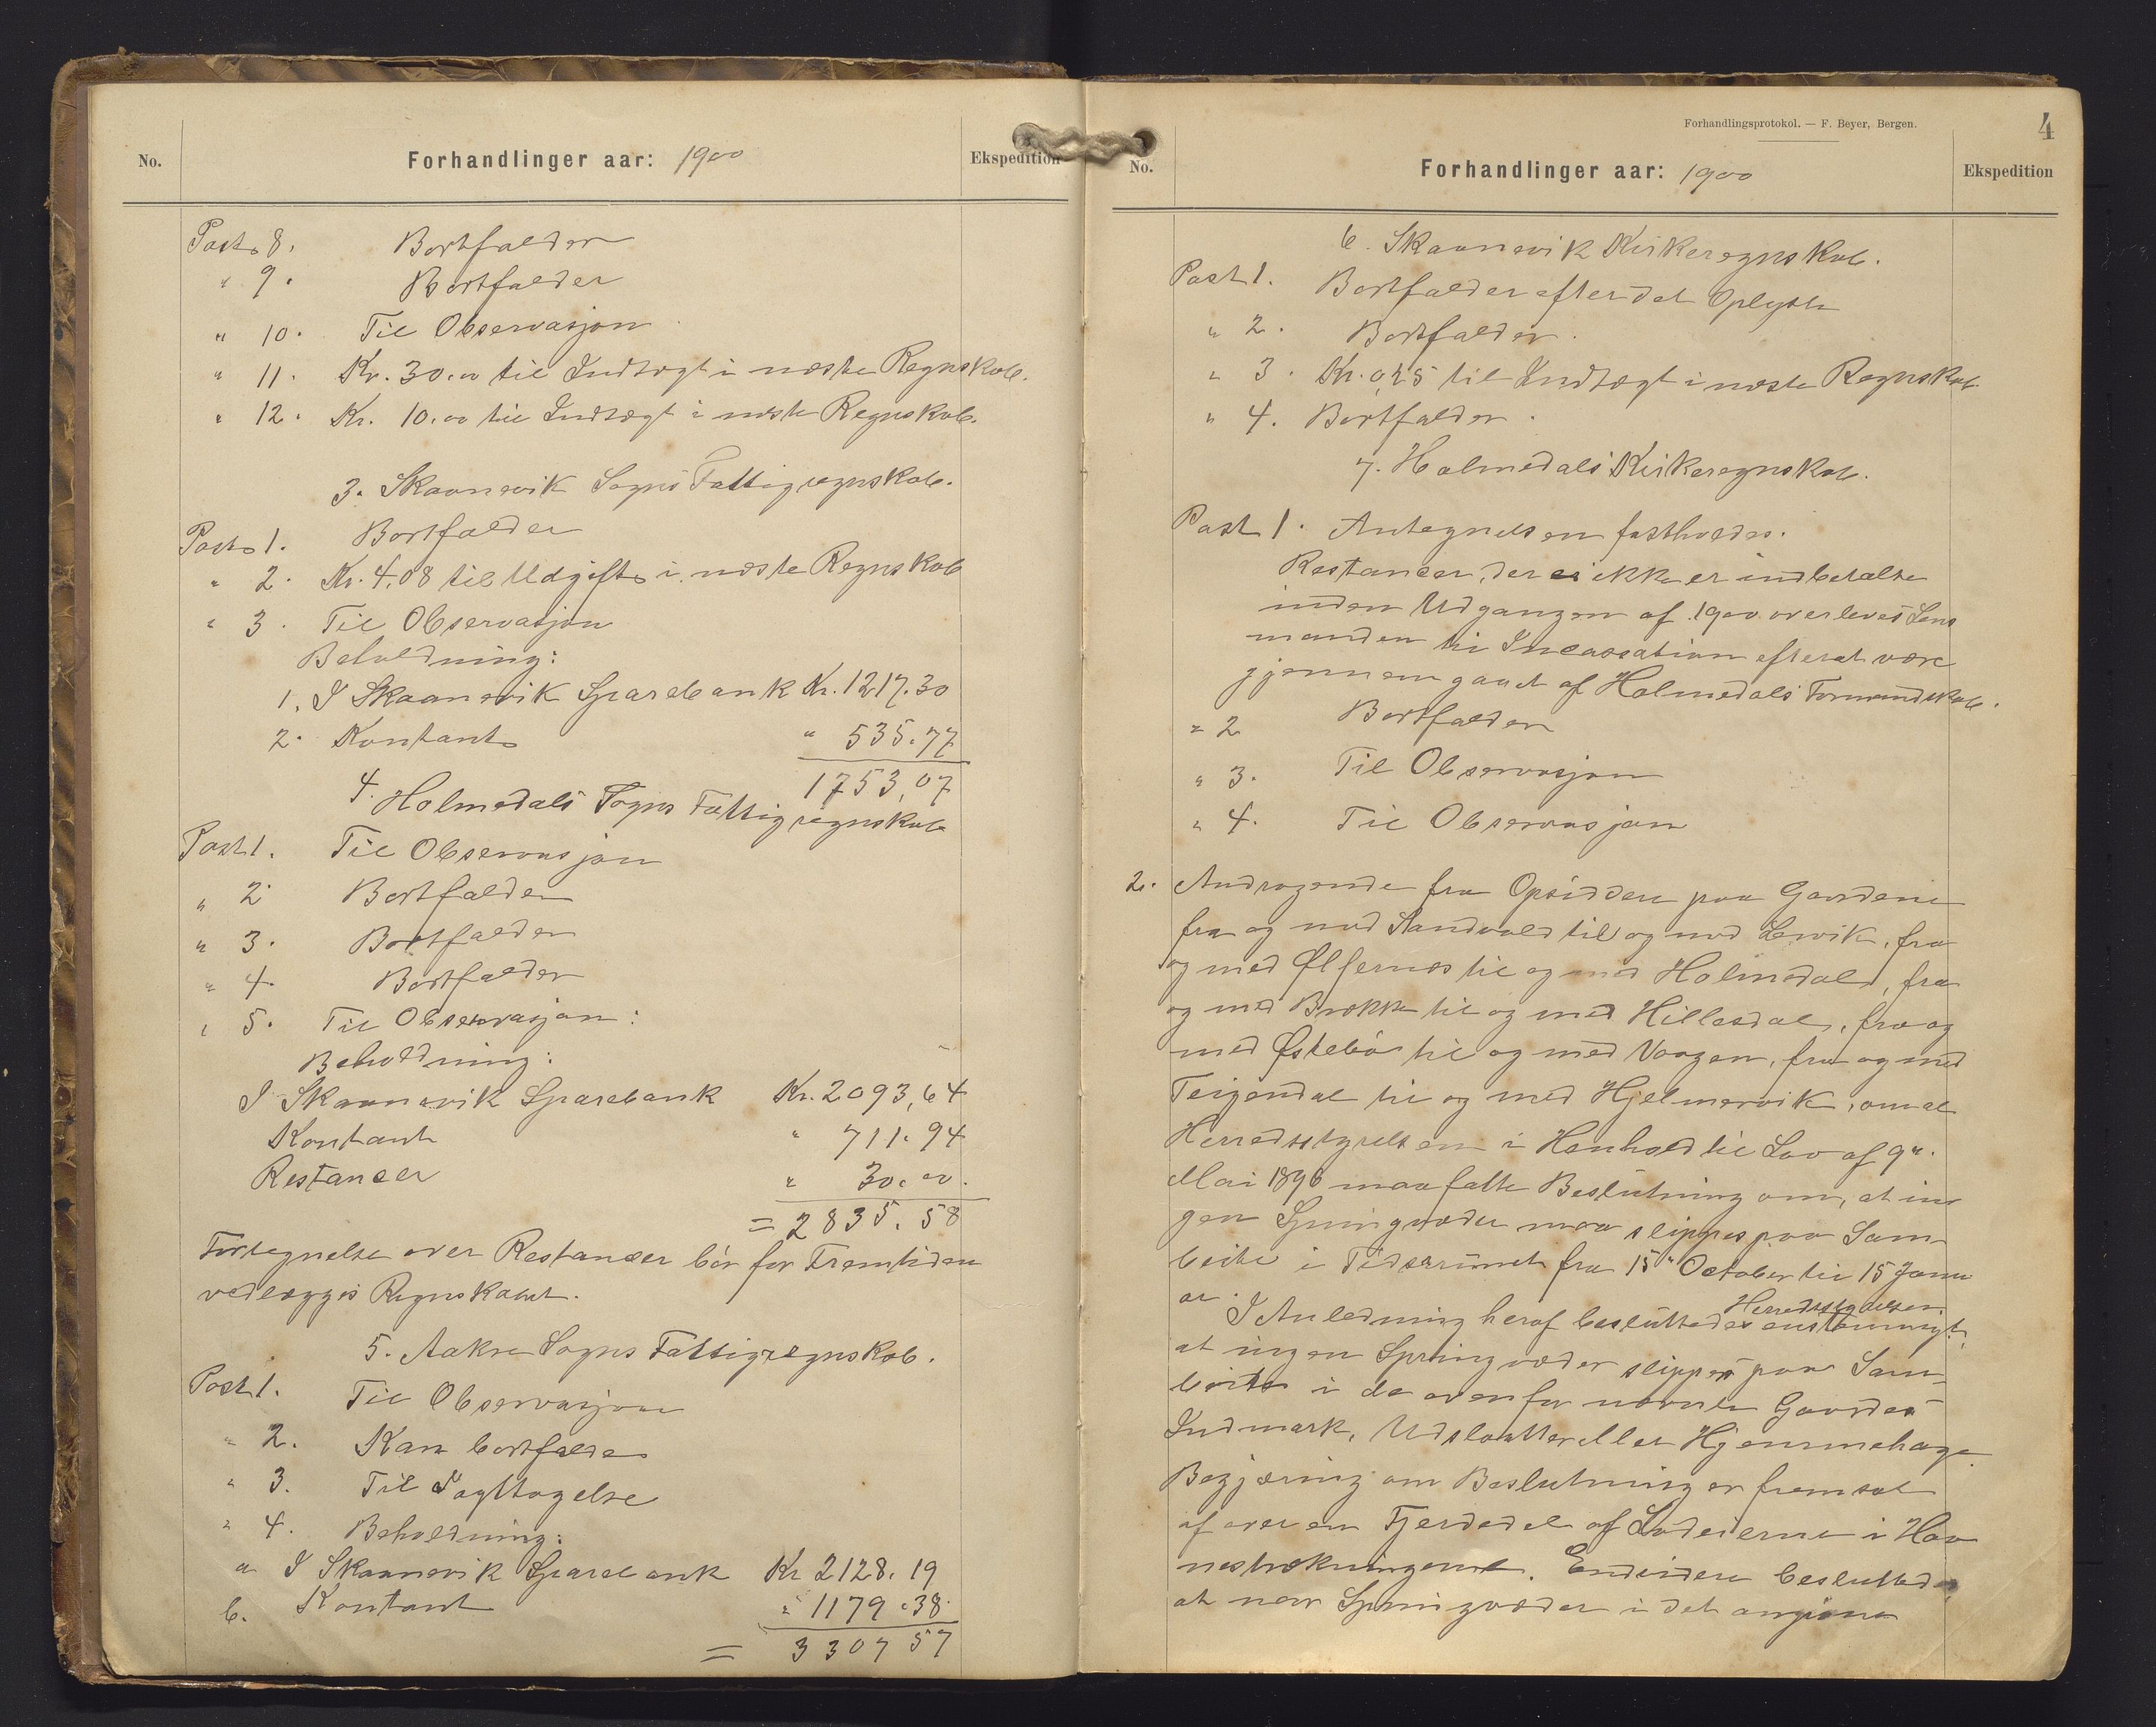 No.
Forhandlinger aar: 1900
Ekspedition
Post 8. Bortfalder
" 9. Bortfalder
" 10. Til Observasjon
" 11. Kr. 30.00 til Indtægt i næste Regnskab.
" 12. Kr. 10.00 til Indtægt i næste Regnskab.
3. Skaanevik Sogns Fattigregnskab.
Post 1. Bortfalder
" 2. Kr. 4.08 til Udgift i næste Regnskab
" 3. Til Observasjon
Beholdning:
1. I Skaanevik Sparebank Kr. 1217.30
2. Kontant " 535.77
1753,07
4. Holmedals Sogns Fattigregnskab
Post 1. Til Observasjon
" 2 Bortfalder
" 3. Bortfalder
" 4. Bortfalder
" 5. Til Observasjon:
Beholdning:
I Skaanevik Sparebank Kr. 2093,64
Kontant " 711.94
Restancer " 30.00.
= 2835.58
Fortegnelse over Restancer bør for Fremtiden
vedlægges Regnskabet.
5. Aakre Sogns Fattigregnskab.
Post 1. Til Observasjon
" 2. Kan bortfalde
" 3. Til Iagttagelse
" 4. Beholdning:
a I Skaanevik Sparebank Kr 2128.19
b. Kontant " 1179.38
= 3307 57
Forhandlingsprotokol. — F. Beyer, Bergen.
4
No.
Forhandlinger aar: 1900
Ekspedition
6. Skaanevik Kirkeregnskab.
Post 1. Bortfalder efter det Oplyste
" 2. Bortfalder.
" 3. Kr. 0,25 til Indtægt i næste Regnskab
" 4. Bortfalder.
7. Holmedals Kirkeregnskab.
Post 1. Antegnelsen fastholdes.
Restancer, der ikke er indbetalte
inden Udgangen af 1900 overleves Lens
manden til Incassation efterat være
gjennemgaaet af Holmedals Formandskab.
" 2 Bortfalder
" 3. Til Observasjon
" 4. Til Observasjon
2. Andragende fra Opsiddere paa Gaardene
fra og med Sandvold til og med Lervik, fra
og med Ølfernes til og med Holmedal, fra
og med Brekke til og med Hillesdal, fra og
med Østebø til og med Vaagen, fra og med
Teigendal til og med Hjelmervik, om at
Herredsstyrelsen i Henhold til Lov af 9de
Mai 1896 maa fatte Beslutning om, at in
gen Springvæder maa slippes paa Sam
beite i Tidsrummet fra 15de October til 15 Janu
ar.
I Anledning heraf besluttede Herredsstyrelsen enstemmigt,
at ingen Springvæder slippes paa Sam-
beite i de ovenfor nævnte Gaardes
Indmark, Udslaatter eller Hjemmehage
Begjæring om Beslutning er fremsat
af over en Fjerdedel af Lodeierne i Hav
nestrækningerne. Endvidere besluttedes
at naar Springvæder i det angivne